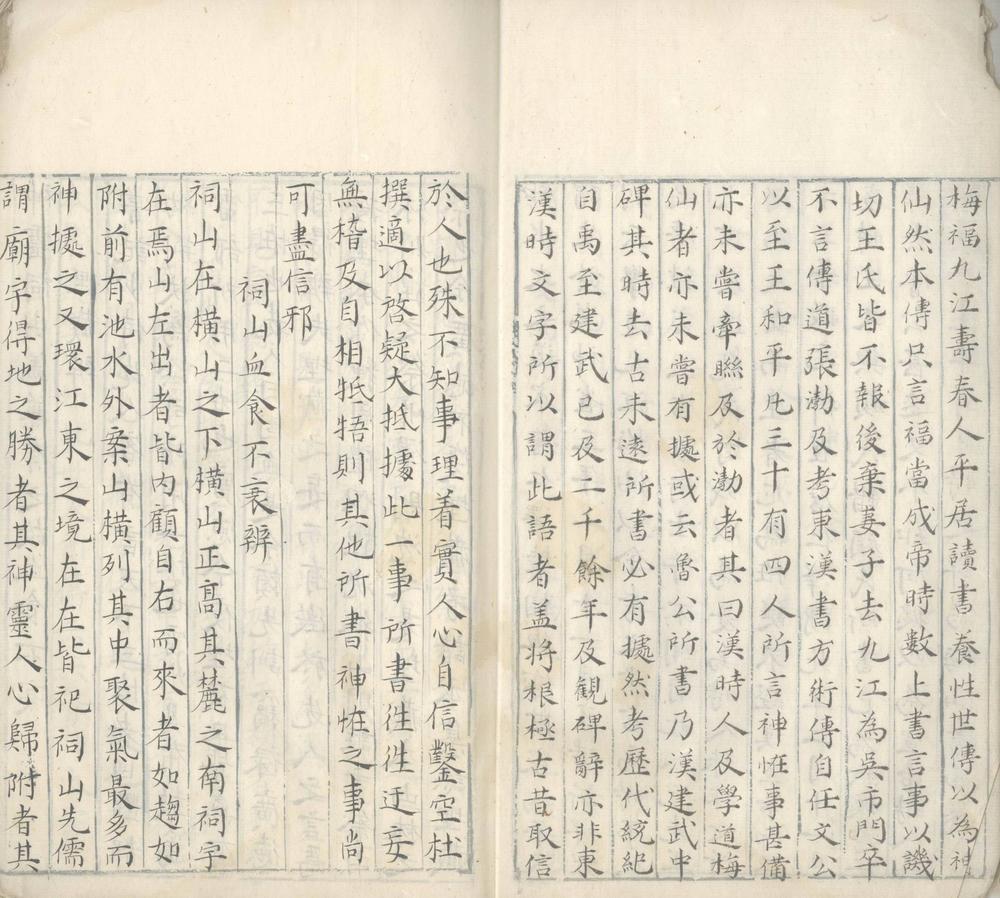 梅福九江壽春人平居讀書養性世傳以為神
仙然本傳只言福當成帝時數上書言事以譏
切王氏皆不報後棄妻子去九江為吳市門卒
不言傳道張渤及考東漢書方術傳自任文公
以至王和平凡三十有四人所言神恠事甚備
亦未嘗牽聯及於渤者其曰漢時人及學道梅
仙者亦未嘗有據或云魯公所書乃漢建武中
碑其時去古未遠所書必有據然考歷代統紀
自禹至建武已及二千餘年及觀碑辭亦非東
漢時文字所以謂此語者盖将根極古昔取信
於人也殊不知事理着實人心自信鑿空杜
撰適以啓疑大抵據此一事所書徃徃迂妄
無稽及自相牴牾則其他所書神恠之事尚
可盡信邪
祠山血食不衰辨
祠山在橫山之下橫山正高其麓之南祠宇
在焉山左出者皆內顧自右而來者如趨如
附前有池水外案山橫列其中聚氣最多而
神據之又環江東之境在在皆祀祠山先儒
謂廟宇得地之勝者其神靈人心歸附者其